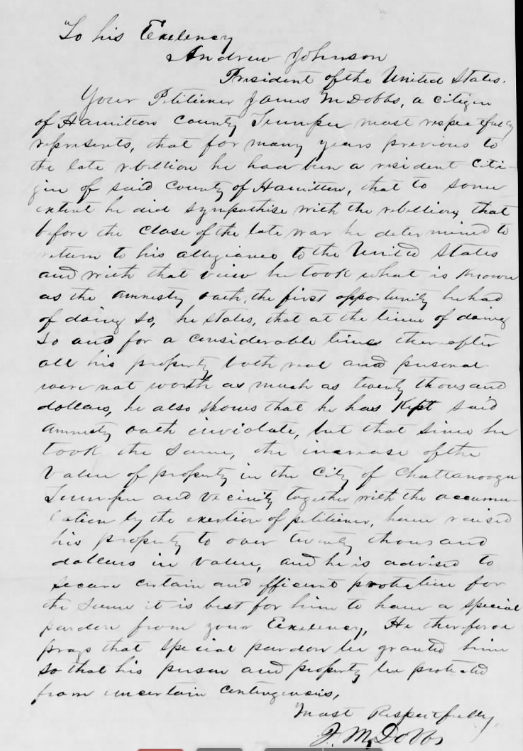 To his Exelency
Andrew Johnson
President of the United States.
Your Petitioner James M Dobbs, a citizen
of Hamilton County Tennessee most respectfully
represents, that for many years previous to
the late rebellion he had been a resident Citi-
zen of said County of Hamilton, that to some
extent he did sympathise with the rebellion, that
before the close of the late war he determined to
return to his allegiance to the United States
and with that view he took what is known
as the amnesty oath, the first opportunity he had
of doing so, he states, that at the time of doing
so and for a considerable time thereafter
all his property both real and personal
were not worth as much as twenty thousand
dollars, he also shows that he has Kept said
amnesty oath inviolate, but that since he
took the same, the increase of the
value of property in the City of Chattanooga
Tennessee and vicinity together with the accumu
lation by the exertion of petitioner, have raised
his property to over twenty thousand
dollars in value, and he is advised to
secure certain and efficient protection for
the same it is best for him to have a special
pardon from your Exelency, He therefore
prays that special pardon be granted him
so that his person and property be protected
from uncertain contingencies,
Most Respectfully,
J. M. Dobbs